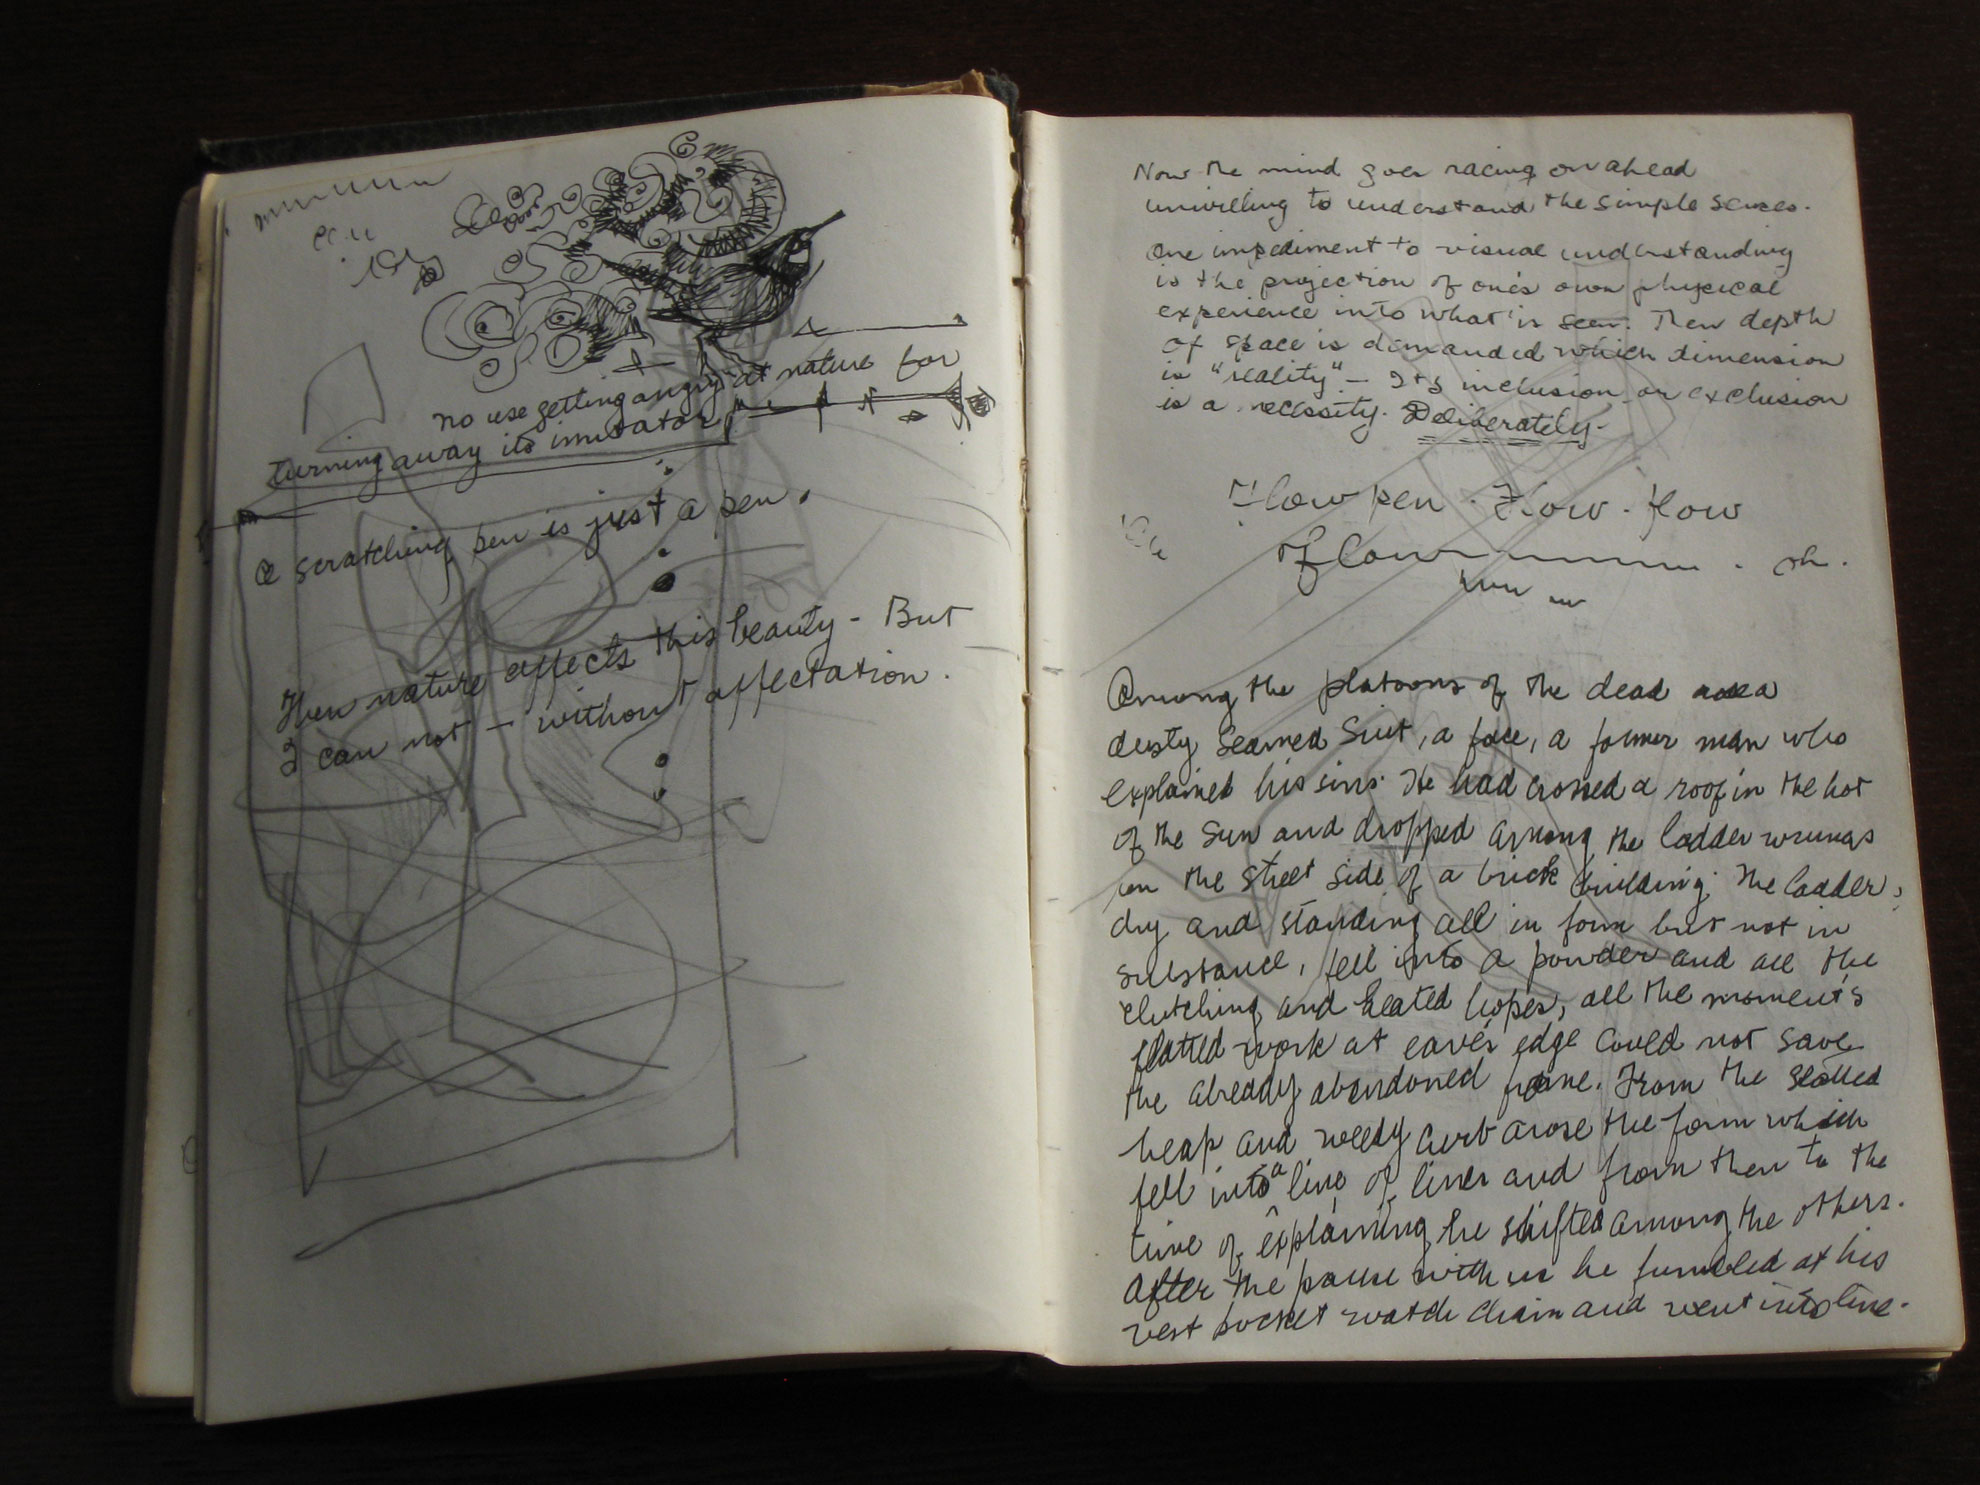 no use getting angry at nature for
turning away its imitator.
A scratching pen is just a pen.
Then nature affects this beauty - But
I can not - without affectation.
Now the mind goes racing on ahead
unwilling to understand the simple senses.
One impediment to visual understanding
is the projection of one's own physical
experience into what is seen. Then depth
of space is demanded which dimension
is "reality" - Its inclusion or exclusion
is a necessity. Deliberately.
Flow pen. Flow. flow
flow . oh.
Among the platoons of the dead a
dusty seamed suit, a face, a former man who
explained his sins. He had crossed a roof in the hot
of the sun and dropped among the ladder wrungs
on the street side of a brick building. The ladder,
dry and standing all in form but not in
substance, fell into a powder and all the
clutching and heated hopes, all the moment's
work at eave's edge could not save
the already abandoned frame. From the
heap and weedy curb arose the form which
fell into a line of liner and from then to the
time of explaining he shifted among the others.
After the pause with us he fumbled at his
vest pocket watch chain and went into line.